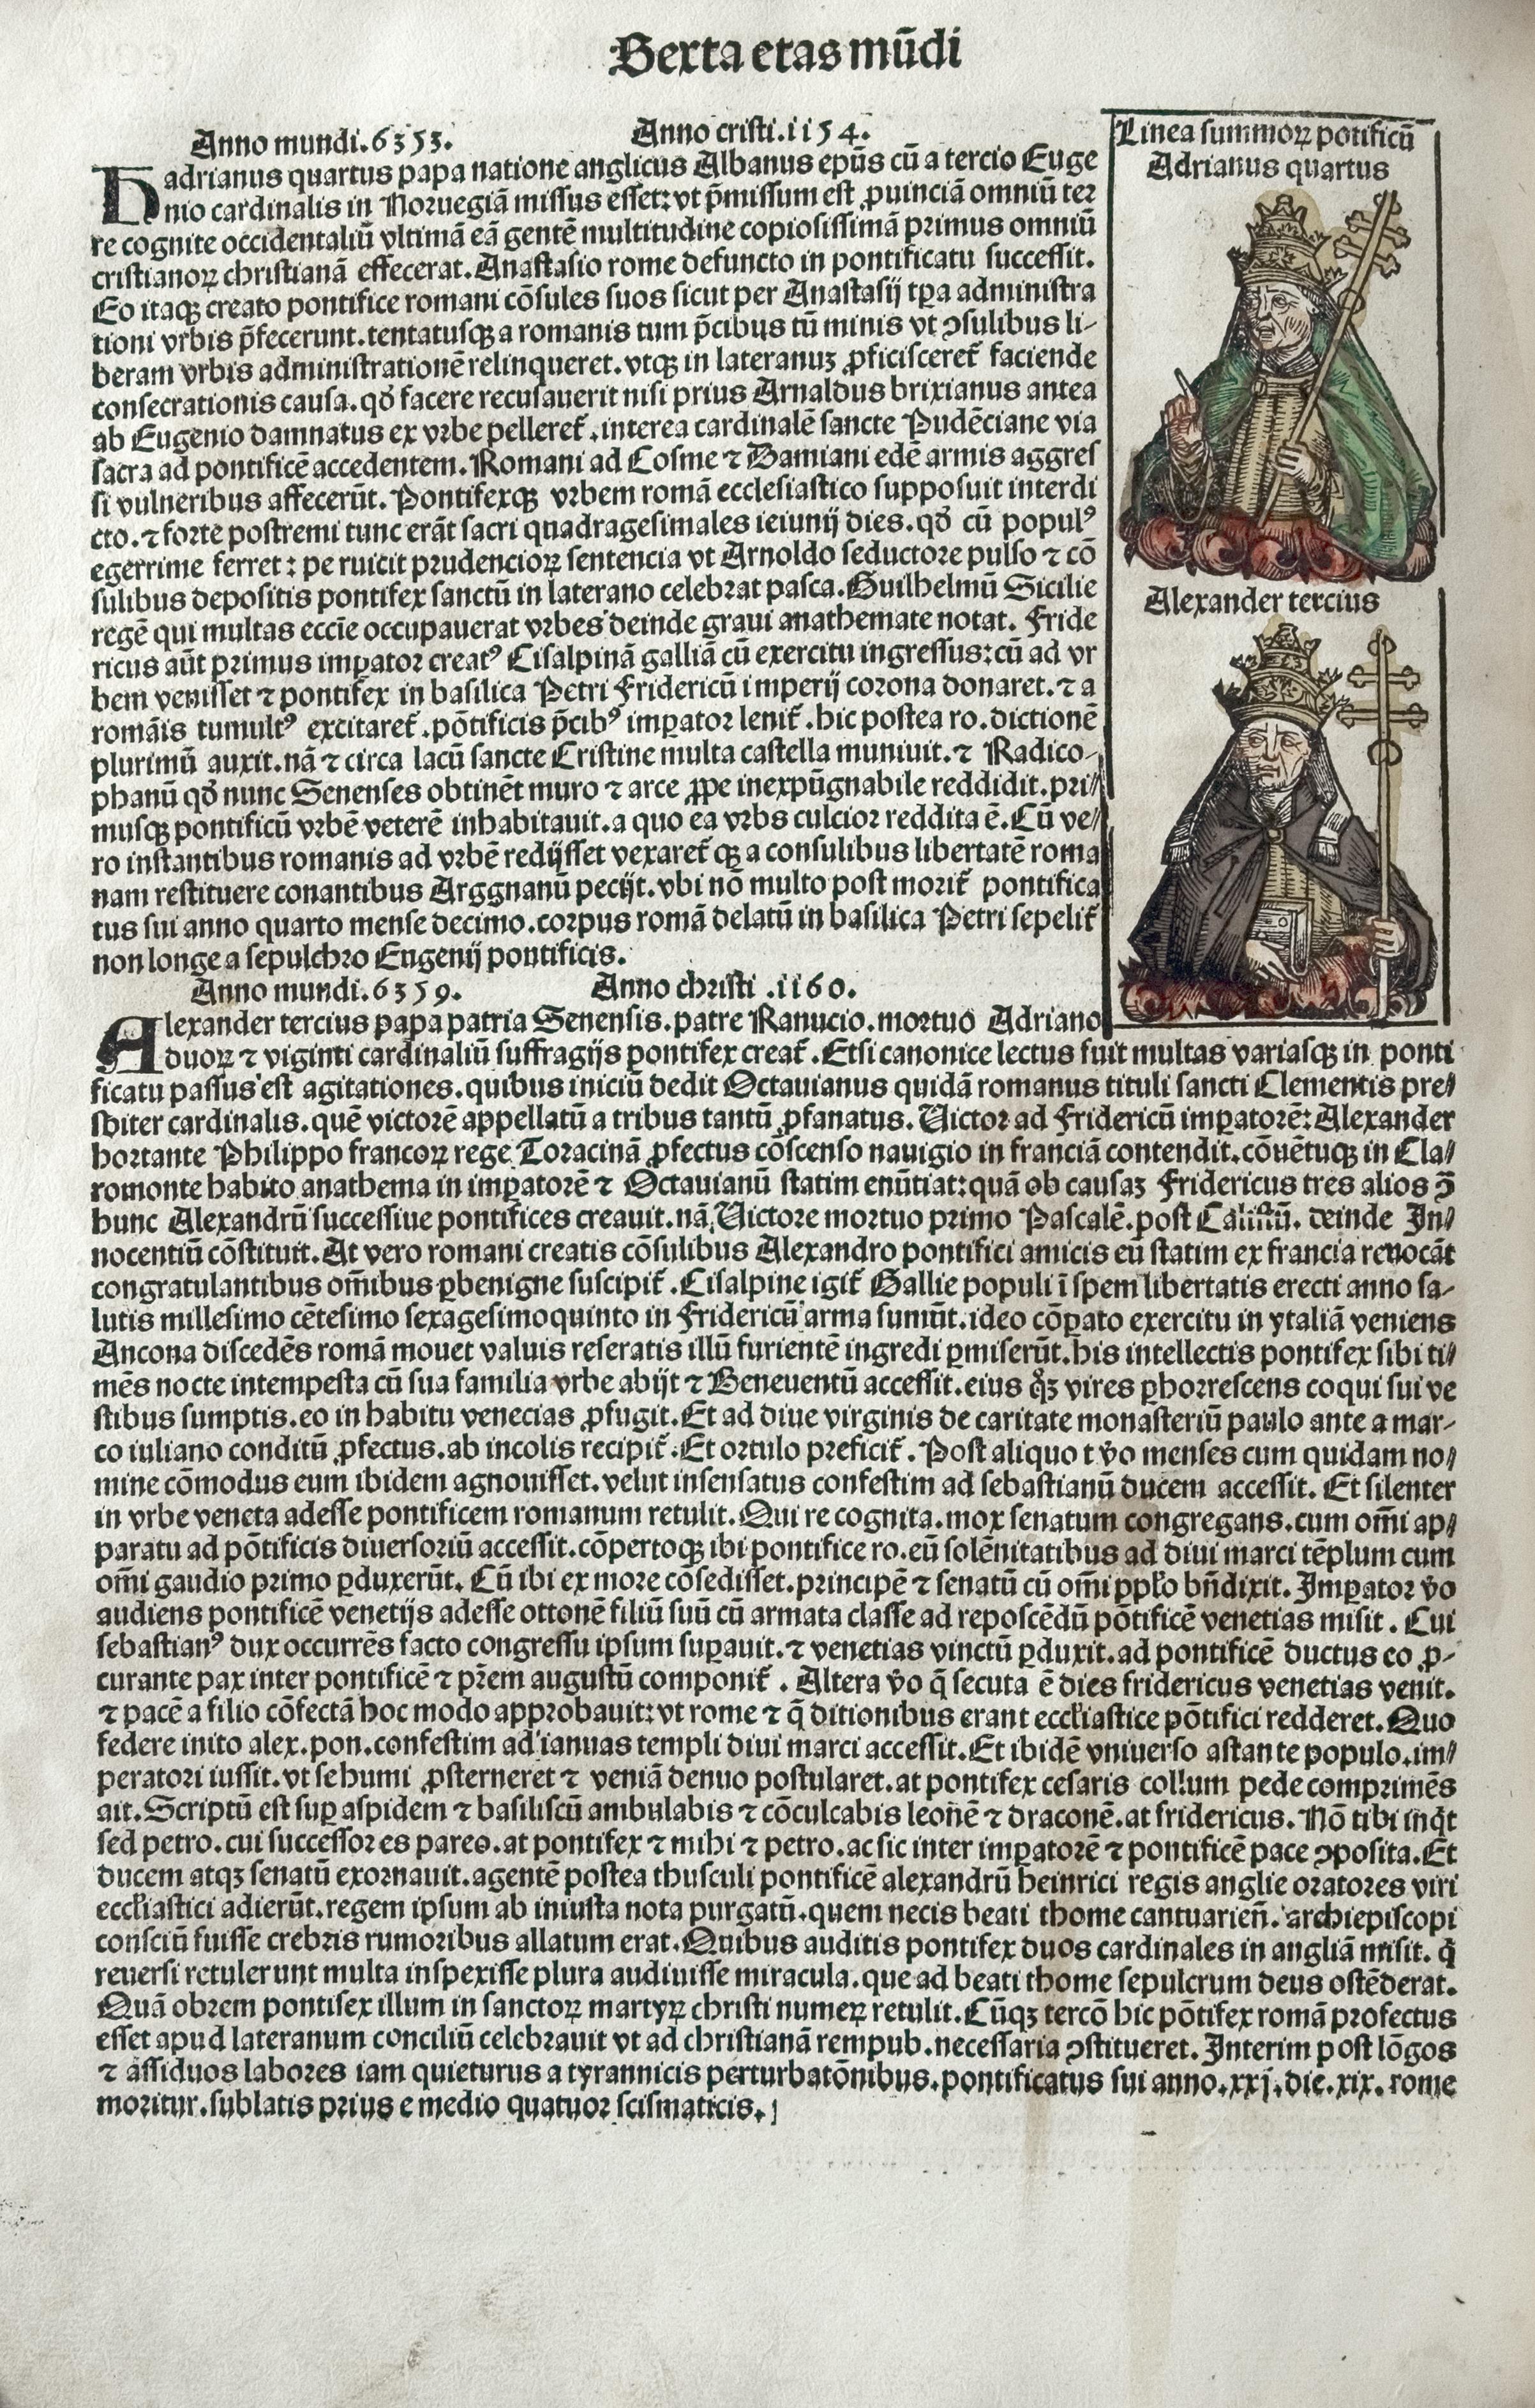 Sexta etas mūdi
Anno mundi.6353. Anno cristi.1154.
Hadrianus quartus papa natione anglicus Albanus epūs cū a tercio Euge
nio cardinalis in Noruegiā missus esset: vt p̄missum est ꝓuinciā omniū ter
re cognite occidentaliū vltimā eā gentē multitudine copiosissimā primus omniū
cristianoꝝ christianā effecerat. Anastasio rome defuncto in pontificatu successit.
Eo itaqꝫ creato pontifice romani cōsules suos sicut per Anastasij tp̄a administra
tioni vrbis p̄fecerunt. tentatusqꝫ a romanis tum p̄cibus tū minis vt ꝯsulibus li-
beram vrbis administrationē relinqueret. vtqꝫ in lateranuꝫ ꝓficisceret᷑ faciende
consecrationis causa. qđ facere recusauerit nisi prius Arnaldus brixianus antea
ab Eugenio damnatus ex vrbe pelleret᷑. interea cardinalē sancte Pudēciane via
sacra ad pontificē accedentem. Romani ad Cosme ⁊ Damiani edē armis aggres
si vulneribus affecerūt. Pontifexqꝫ vrbem romā ecclesiastico supposuit interdi
cto. ⁊ forte postremi tunc erāt sacri quadragesimales ieiunij dies. qđ cū populꝰ
egerrime ferret: pe ruicit prudencioꝝ sentencia vt Arnoldo seductore pulso ⁊ cō
sulibus depositis pontifex sanctū in laterano celebrat pasca. Guilhelmū Sicilie
regē qui multas eccīe occupauerat vrbes deinde graui anathemate notat. Fride
ricus aūt primus imꝑator creatꝰ Cisalpinā galliā cū exercitu ingressus: cū ad vr
bem venisset ⁊ pontifex in basilica Petri Fridericū imperij corona donaret. ⁊ a
romāis tumultꝰ excitaret᷑. pōtificis p̄cibꝰ imꝑator lenit᷑. hic postea ro. dictionē
plurimū auxit. nā ⁊ circa lacū sancte Cristine multa castella muniuit. ⁊ Radico-
phanū qđ nunc Senenses obtinēt muro ⁊ arce ꝓpe inexpūgnabile reddidit. pri-
musqꝫ pontificū vrbē veterē inhabitauit. a quo ea vrbs culcior reddita ē. Cū ve-
ro instantibus romanis ad vrbē redijsset vexaret᷑ qꝫ a consulibus libertatē roma
nam restituere conantibus Arggnanū pecijt. vbi nō multo post morit᷑ pontifica
tus sui anno quarto mense decimo. corpus romā delatū in basilica Petri sepelit᷑
non longe a sepulchro Eugenij pontificis.
Linea summoꝝ potificū
Adrianus quartus
Alexander tercius
Anno mundi.6359. Anno christi .1160.
Alexander tercius papa patria Senensis. patre Ranucio. mortuo Adriano
duoꝝ ⁊ viginti cardinaliū suffragijs pontifex creat᷑. Etsi canonice lectus fuit multas variasqꝫ in ponti
ficatu passus est agitationes. quibus iniciū dedit Octauianus quidā romanus tituli sancti Clementis pre-
sbiter cardinalis. quē victorē appellatū a tribus tantū ꝓfanatus. Victor ad Fridericū imꝑatorē: Alexander
hortante Philippo francoꝝ rege Toracinā ꝓfectus cōscenso nauigio in franciā contendit. cōuētuqꝫ in Cla-
romonte habito anathema in imꝑatorē ⁊ Octauianū statim enūtiat: quā ob causaꝫ Fridericus tres alios ꝯ̄
hunc Alexandrū successiue pontifices creauit. nā Victore mortuo primo Pascalē. post Calistū. deinde In-
nocentiū cōstituit. At vero romani creatis cōsulibus Alexandro pontifici amicis eū statim ex francia reuocāt
congratulantibus om̄ibus ꝑbenigne suscipit᷑. Cisalpine igit᷑ Gallie populi ī spem libertatis erecti anno sa-
lutis millesimo cētesimo sexagesimoquinto in Fridericū arma sumūt. ideo cōꝑato exercitu in ytaliā veniens
Ancona discedēs romā mouet valuis reseratis illū furientē ingredi ꝑmiserūt. his intellectis pontifex sibi ti-
mēs nocte intempesta cū sua familia vrbe abijt ⁊ Beneuentū accessit. eius qꝫ vires ꝑhorrescens coqui sui ve
stibus sumptis. eo in habitu venecias ꝓfugit. Et ad diue virginis de caritate monasteriū paulo ante a mar-
co iuliano conditū ꝓfectus. ab incolis recipit᷑. Et ortulo preficit᷑. Post aliquo t v̄o menses cum quidam no-
mine cōmodus eum ibidem agnouisset. velut insensatus confestim ad sebastianū ducem accessit. Et silenter
in vrbe veneta adesse pontificem romanum retulit. Qui re cognita. mox senatum congregans. cum om̄i ap-
paratu ad pōtificis diuersoriū accessit. cōpertoqꝫ ibi pontifice ro. eū solēnitatibus ad diui marci tēplum cum
om̄i gaudio primo ꝑduxerūt. Cū ibi ex more cōsedisset. principē ⁊ senatū cū om̄i ppło bn̄dixit. Imꝑator v̄o
audiens pontificē venetijs adesse ottonē filiū suū cū armata classe ad reposcēdū pōtificē venetias misit. Cui
sebastianꝰ dux occurrēs facto congressu ipsum suꝑauit. ⁊ venetias vinctū ꝑduxit. ad pontificē ductus eo ꝓ-
curante pax inter pontificē ⁊ pr̄em augustū componit᷑. Altera v̄o q̄ secuta ē dies fridericus venetias venit.
⁊ pacē a filio cōfectā hoc modo approbauit: vt rome ⁊ q̄ ditionibus erant eccłiastice pōtifici redderet. Quo
federe inito alex. pon. confestim ad ianuas templi diui marci accessit. Et ibidē vniuerso astante populo. im-
peratori iussit. vt sehumi ꝓsterneret ⁊ veniā denuo postularet. at pontifex cesaris collum pede comprimēs
ait. Scriptū est suꝑ aspidem ⁊ basiliscū ambulabis ⁊ cōculcabis leonē ⁊ draconē. at fridericus. Nō tibi inq̄t
sed petro. cui successor es pareo. at pontifex ⁊ mihi ⁊ petro. ac sic inter imꝑatorē ⁊ pontificē pace ꝯposita. Et
ducem atqꝫ senatū exornauit. agentē postea thusculi pontificē alexandrū heinrici regis anglie oratores viri
eccłiastici adierūt. regem ipsum ab iniusta nota purgatū. quem necis beati thome cantuarien̄. archiepiscopi
consciū fuisse crebris rumoribus allatum erat. Quibus auditis pontifex duos cardinales in angliā misit. q̄
reuersi retulerunt multa inspexisse plura audiuisse miracula. que ad beati thome sepulcrum deus ostēderat.
Quā obrem pontifex illum in sanctoꝝ martyꝝ christi numeꝝ retulit. Cūqꝫ tercō hic pōtifex romā profectus
esset apud lateranum conciliū celebrauit vt ad christianā rempub. necessaria ꝯstitueret. Interim post lōgos
⁊ assiduos labores iam quieturus a tyrannicis perturbatōnibus. pontificatus sui anno. xxj. die. xix. rome
moritur. sublatis prius e medio quatuor scismaticis.